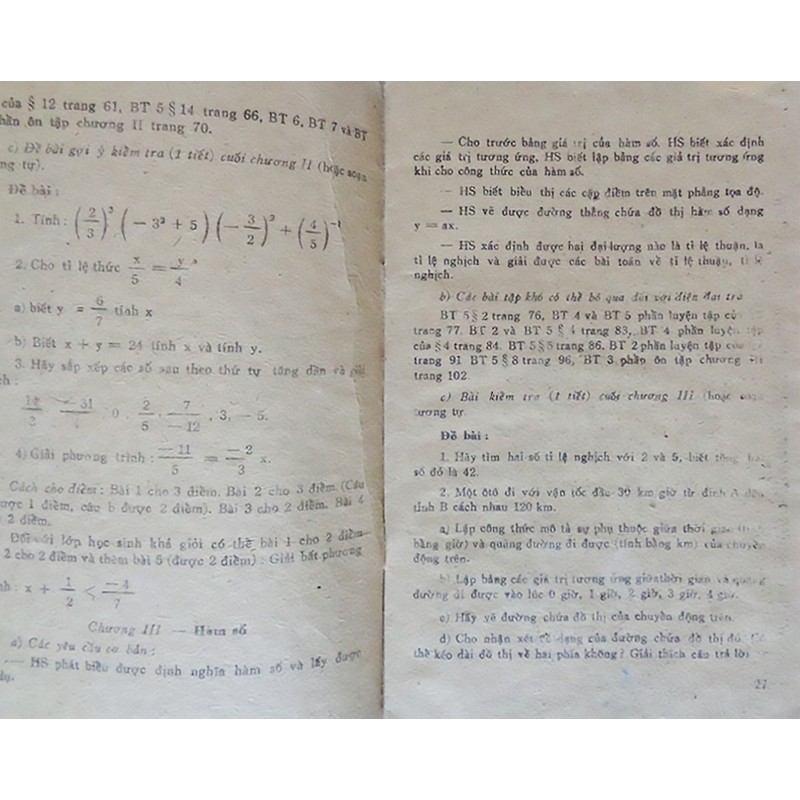 của § 12 trang 61, BT 5 § 14 trang 66, BT 6, BT 7 và BT
phần ôn tập chương II trang 70.
c) Đề bài gợi ý kiểm tra (1 tiết) cuối chương II (hoặc soạn
tương tự).
Đề bài :
1. Tính : (2/3)³ (− 3³ + 5) (− 3/2)² + (4/5)⁻¹
2. Cho tỉ lệ thức x/5 = y/4
a) biết y = 6/7 tính x
b) Biết x + y = 24 tính x và tính y.
3. Hãy sắp xếp các số sau theo thứ tự tăng dần và
−31 0 2/5 , 7/−12 , 3, − 5.
4) Giải phương trình : −11/5 = −2/3 x.
Cách cho điểm : Bài 1 cho 3 điểm. Bài 2 cho 3 điểm (Câu
được 1 điểm, câu b được 2 điểm). Bài 3 cho 2 điểm. Bài 4
2 điểm.
Đối với lớp học sinh khá giỏi có thể bài 1 cho 2 điểm
2 cho 2 điểm và thêm bài 5 (được 2 điểm) : Giải bất phương
x + 1/2 < −4/7
Chương III — Hàm số
a) Các yêu cầu cơ bản :
— HS phát biểu được định nghĩa hàm số và lấy được
dụ.
— Cho trước bảng giá trị của hàm số. HS biết xác định
các giá trị tương ứng, HS biết lập bảng các giá trị tương ứng
khi cho công thức của hàm số.
— HS biết biểu thị các cặp điểm trên mặt phẳng tọa độ.
— HS vẽ được đường thẳng chứa đồ thị hàm số dạng
y = ax.
— HS xác định được hai đại lượng nào là tỉ lệ thuận, là
tỉ lệ nghịch và giải được các bài toán về tỉ lệ thuận, tỉ lệ
nghịch.
b) Các bài tập khó có thể bỏ qua đối với diện đại trà
BT 5 § 2 trang 76, BT 4 và BT 5 phần luyện tập của
trang 77. BT 2 và BT 5 § 4 trang 83, BT 4 phần luyện tập
của § 4 trang 84. BT 5 § 5 trang 86. BT 2 phần luyện tập của
trang 91 BT 5 § 8 trang 96, BT 3 phần ôn tập chương III
trang 102.
c) Bài kiểm tra (1 tiết) cuối chương III (hoặc soạn
tương tự
Đề bài :
1. Hãy tìm hai số tỉ lệ nghịch với 2 và 5, biết tổng hai
số đó là 42.
2. Một ôtô đi với vận tốc đầu 30 km giờ từ đỉnh A đến
tỉnh B cách nhau 120 km.
a) Lập công thức mô tả sự phụ thuộc giữa thời gian (tính
bằng giờ) và quãng đường đi được (tính bằng km) của chuyển
động trên.
b) Lập bảng các giá trị tương ứng giữa thời gian và quãng
đường đi được vào lúc 0 giờ, 1 giờ, 2 giờ, 3 giờ, 4 giờ.
c) Hãy vẽ đường chứa đồ thị của chuyển động trên.
d) Cho nhận xét về dạng của đường chứa đồ thị đó. Có
thể kéo dài đồ thị về hai phía không ? Giải thích câu trả lời
27